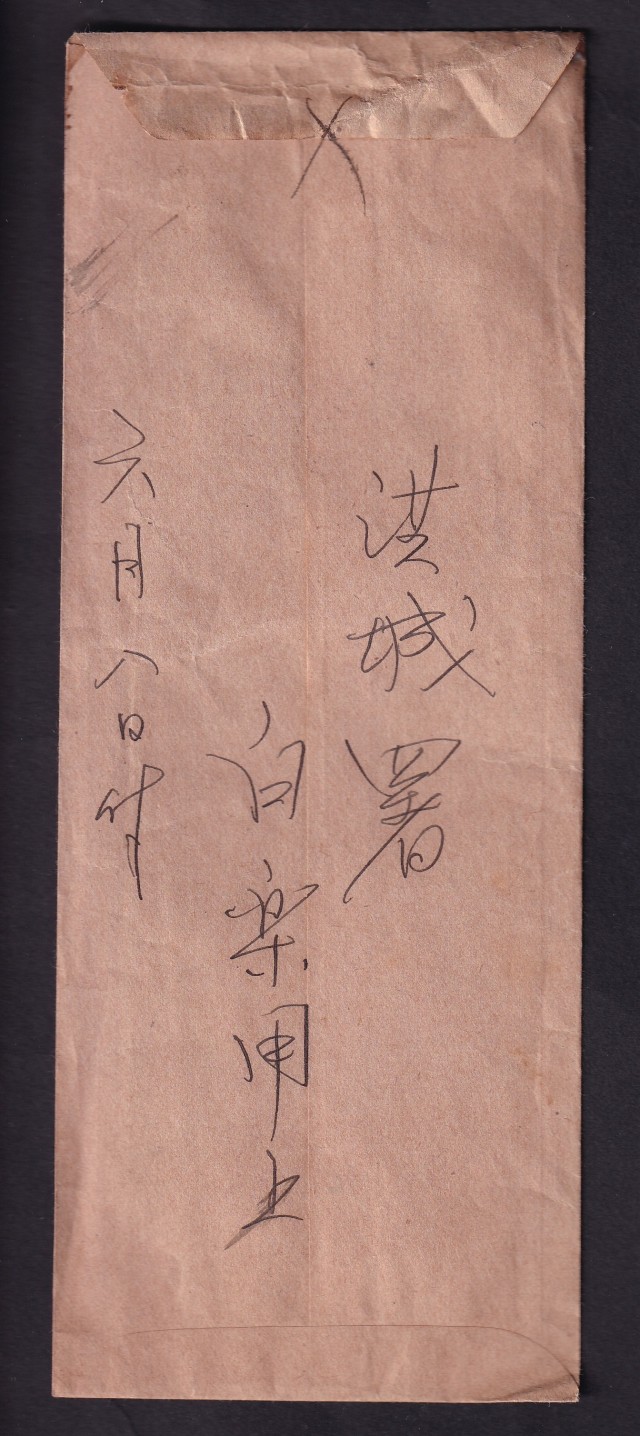 X
洪城署
白楽用上
六月八日付